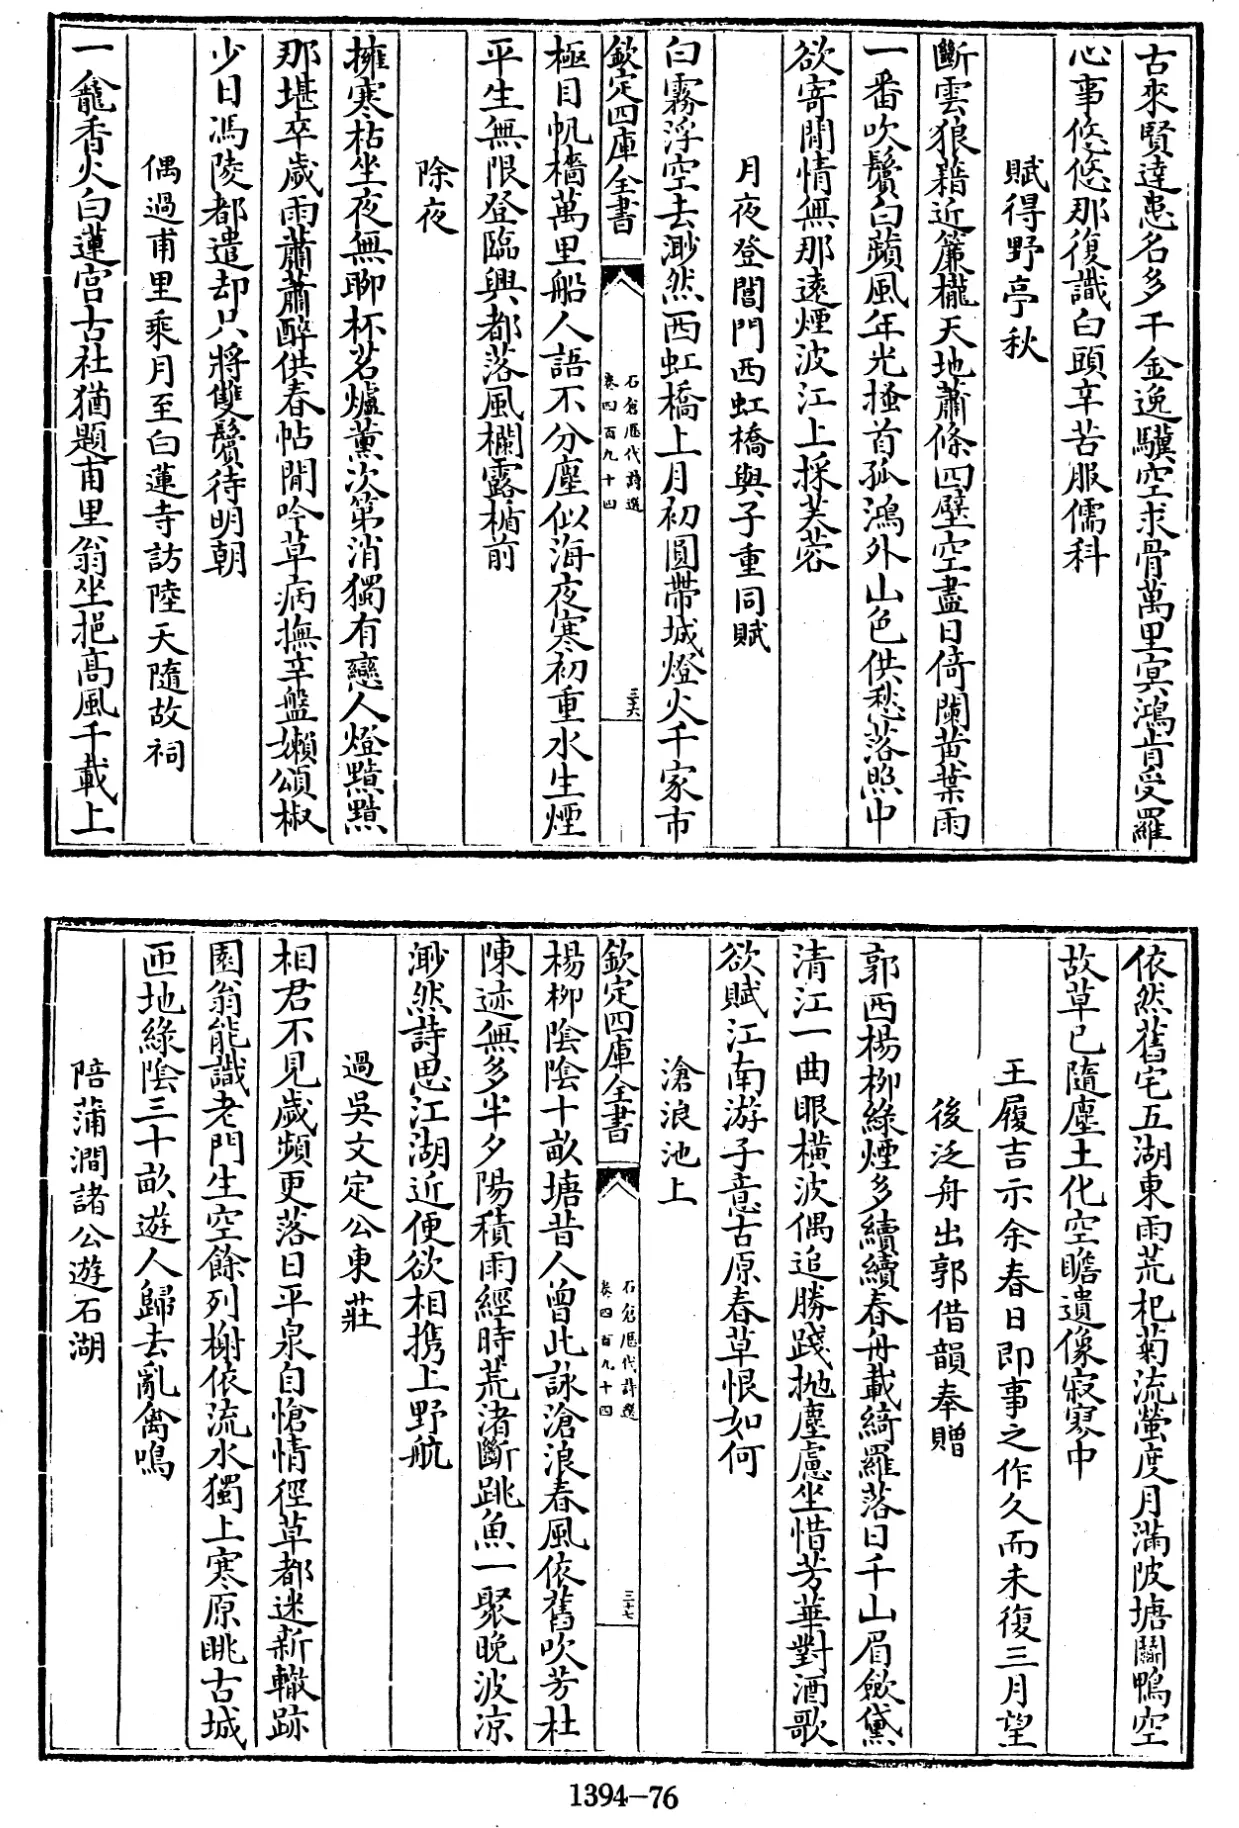 古來賢達患名多千金逸驥空求骨萬里冥鴻肯受羅
心事悠悠那復識白頭辛苦服儒科
賦得野亭秋
斷雲狼藉近簾櫳天地蕭條四壁空盡日倚闌黄葉雨
一番吹鬢白蘋風年光搔首孤鴻外山色供愁落照中
欲寄閒情無那遠煙波江上採芙蓉
月夜登閶門西虹橋與子重同賦
白霧浮空去渺然西虹橋上月初圓帶城燈火千家市
欽定四庫全書
石倉歷代詩選
卷四百九十四
三六
極目帆檣萬里船人語不分塵似海夜寒初重水生煙
平生無限登臨興都落風欄露楯前
除夜
擁寒枯坐夜無聊杯茗爐薰次第消獨有戀人燈㸃㸃
那堪卒歲雨蕭蕭醉供春帖閒吟草病撫辛盤嬾頌椒
少日馮陵都遣却只將雙鬢待明朝
偶過甫里乘月至白蓮寺訪陸天隨故祠
一龕香火白蓮宫古社猶題甫里翁坐挹髙風千載上
依然舊宅五湖東雨荒杞菊流螢度月滿陂塘鬬鴨空
故草已隨塵土化空瞻遺像寂寥中
王履吉示余春日即事之作久而未復三月望
後泛舟出郭借韻奉贈
郭西楊柳綠煙多續續春舟載綺羅落日千山眉斂黛
清江一曲眼横波偶追勝踐抛塵慮坐惜芳華對酒歌
欲賦江南游子意古原春草恨如何
滄浪池上
欽定四庫全書
石倉歷代詩選
卷四百九十四
三十七
楊柳陰陰十畝塘昔人曾此詠滄浪春風依舊吹芳杜
陳迹無多半夕陽積雨經時荒渚斷跳魚一聚晚波凉
渺然詩思江湖近便欲相携上野航
過吳文定公東莊
相君不見嵗頻更落日平泉自愴情徑草都迷新轍跡
園翁能識老門生空餘列榭依流水獨上寒原眺古城
匝地綠陰三十畝遊人歸去亂禽鳴
陪蒲澗諸公遊石湖
1394-76